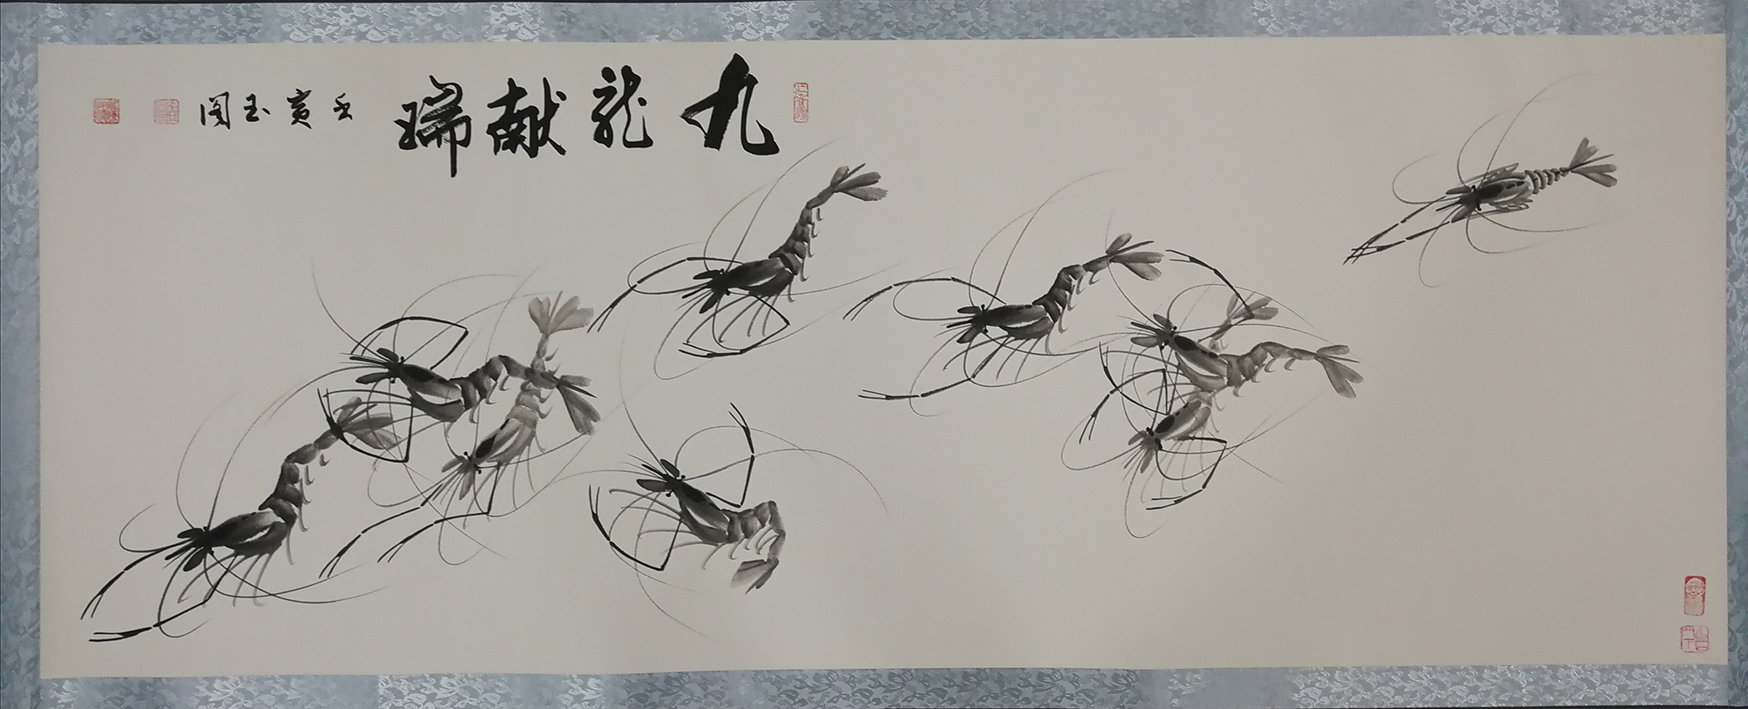 九龙献瑞
壬寅玉阁